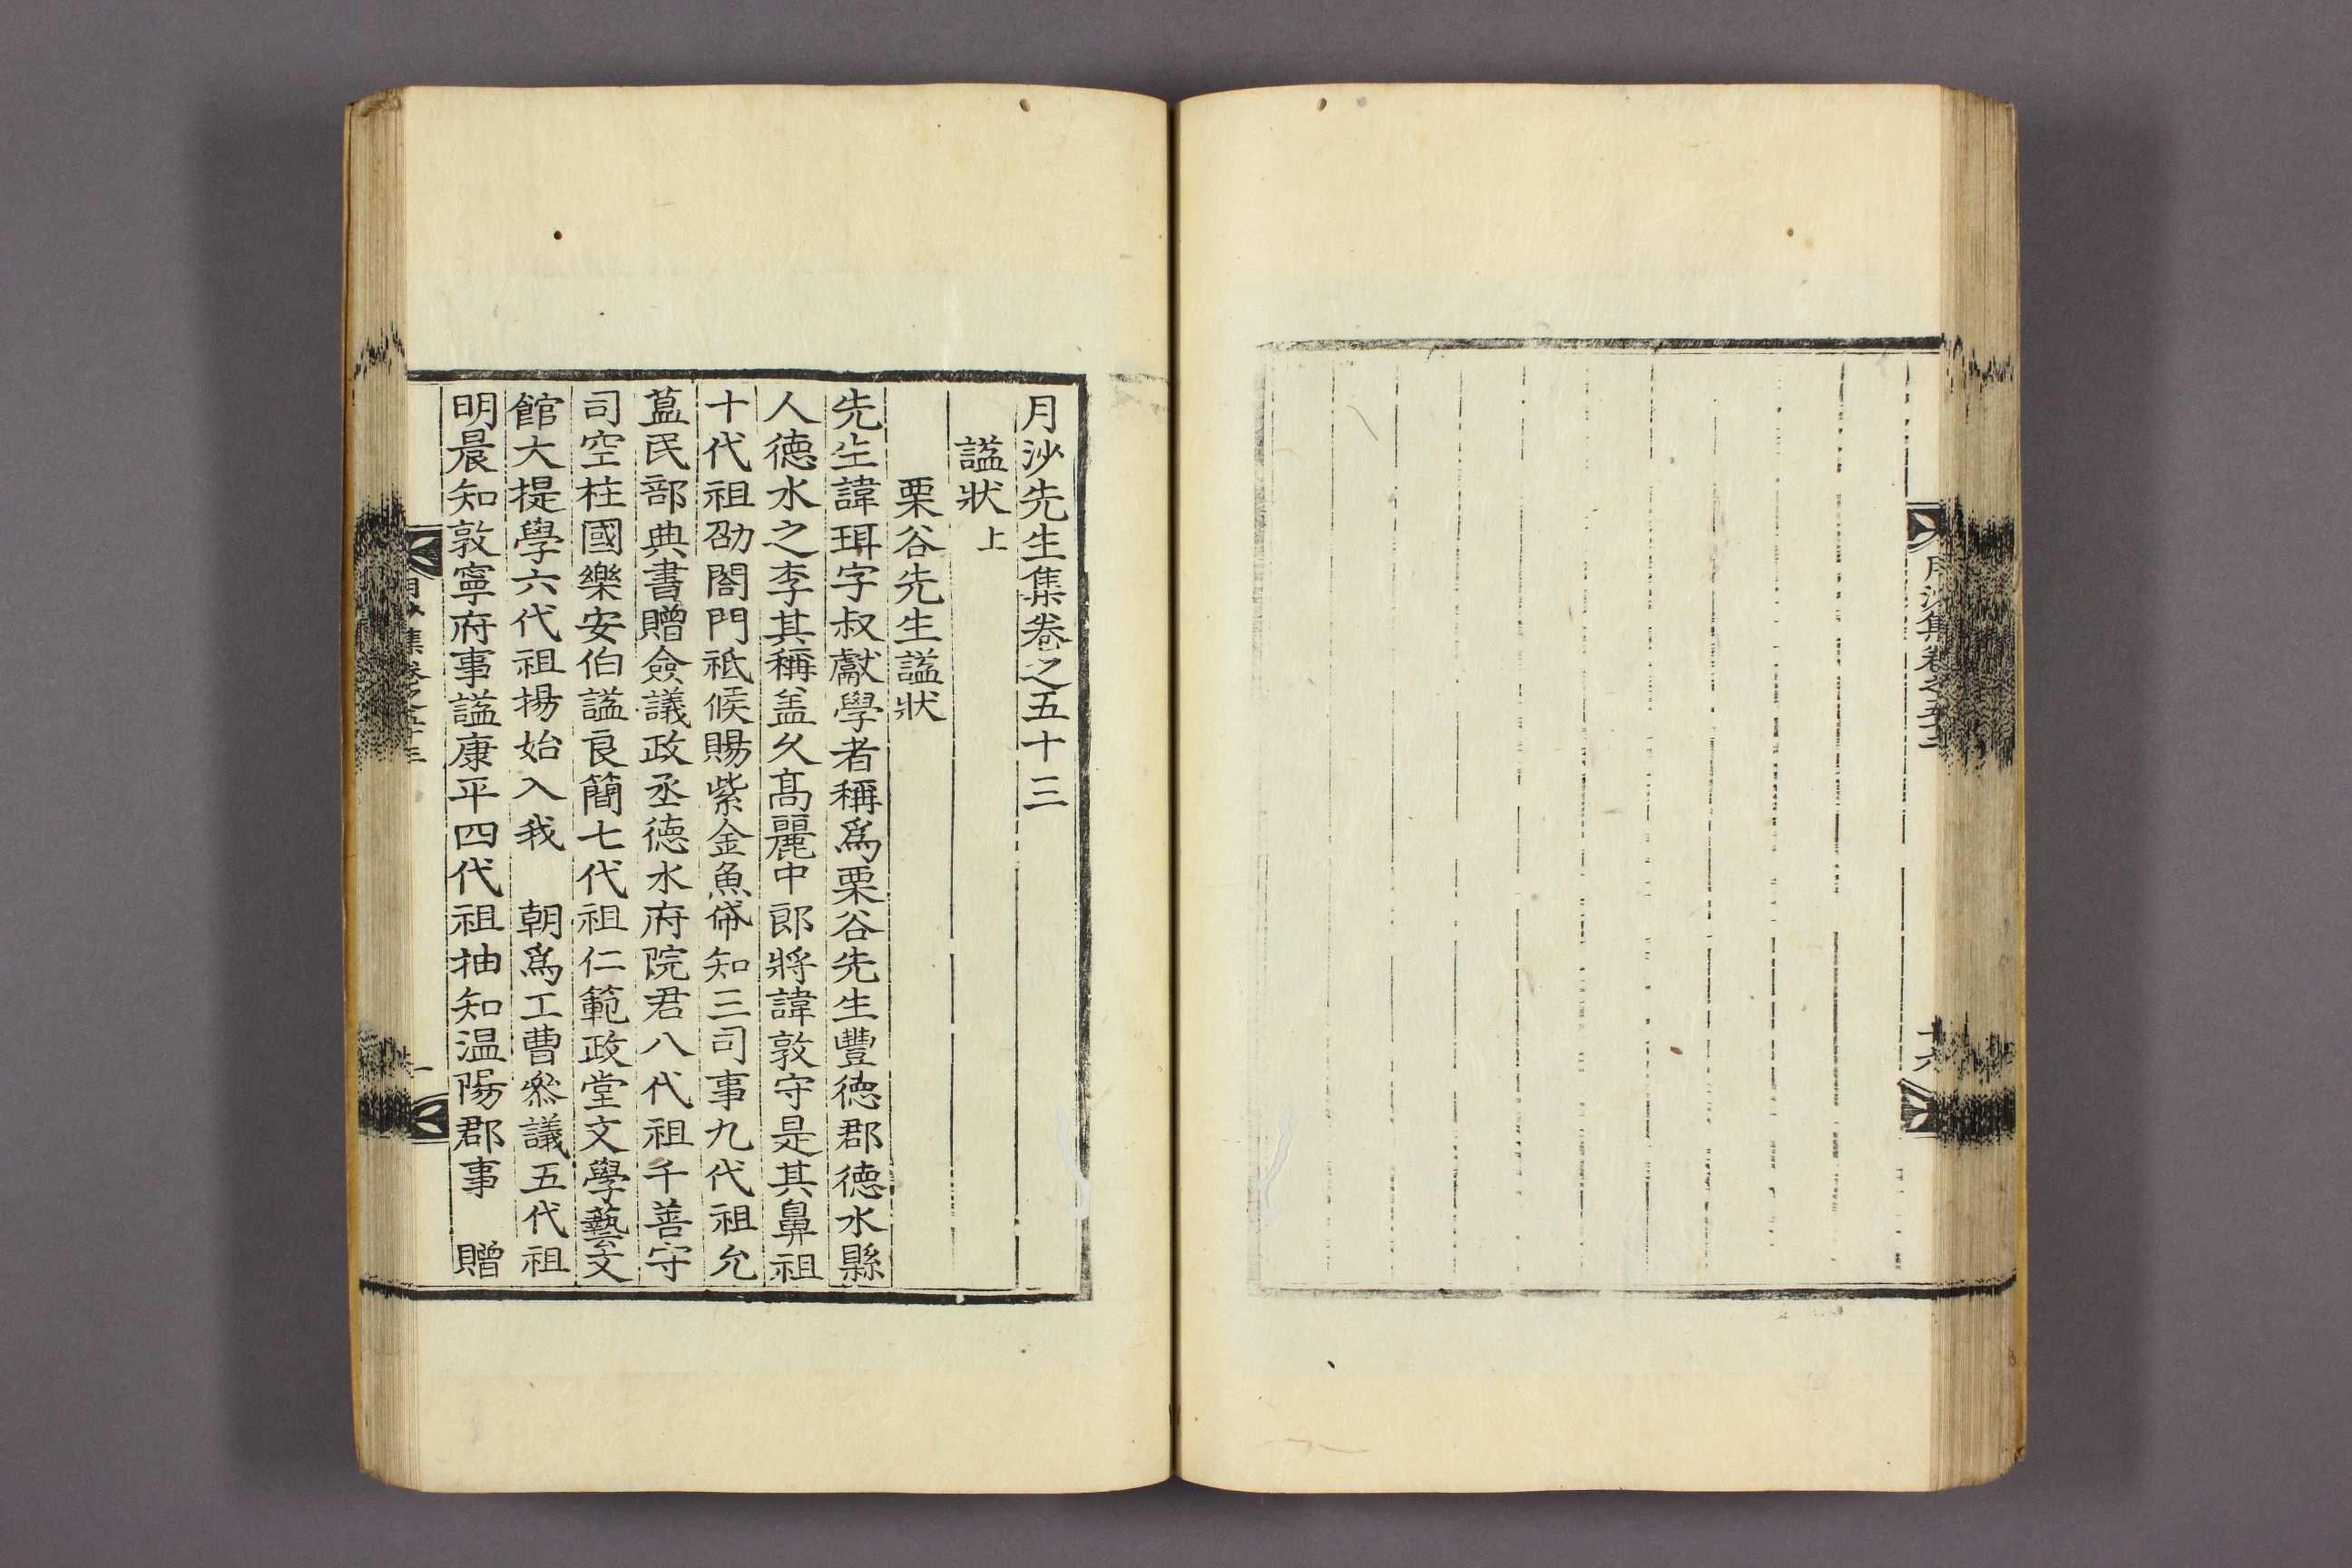 月沙集卷之五十二
十六
月沙先生集卷之五十三
諡狀上
栗谷先生諡狀
先生諱珥字叔獻學者稱爲栗谷先生豐德郡德水縣
人德水之李其稱盖久高麗中郎將諱敦守是其鼻祖
十代祖劭閤門祗候賜紫金魚帒知三司事九代祖允
蒕民部典書贈僉議政丞德水府院君八代祖千善守
司空柱國樂安伯諡良簡七代祖仁範政堂文學藝文
館大提學六代祖揚始入我 朝爲工曹叅議五代祖
明晨知敦寧府事諡康平四代祖抽知温陽郡事 贈
月沙集卷之五十三
一